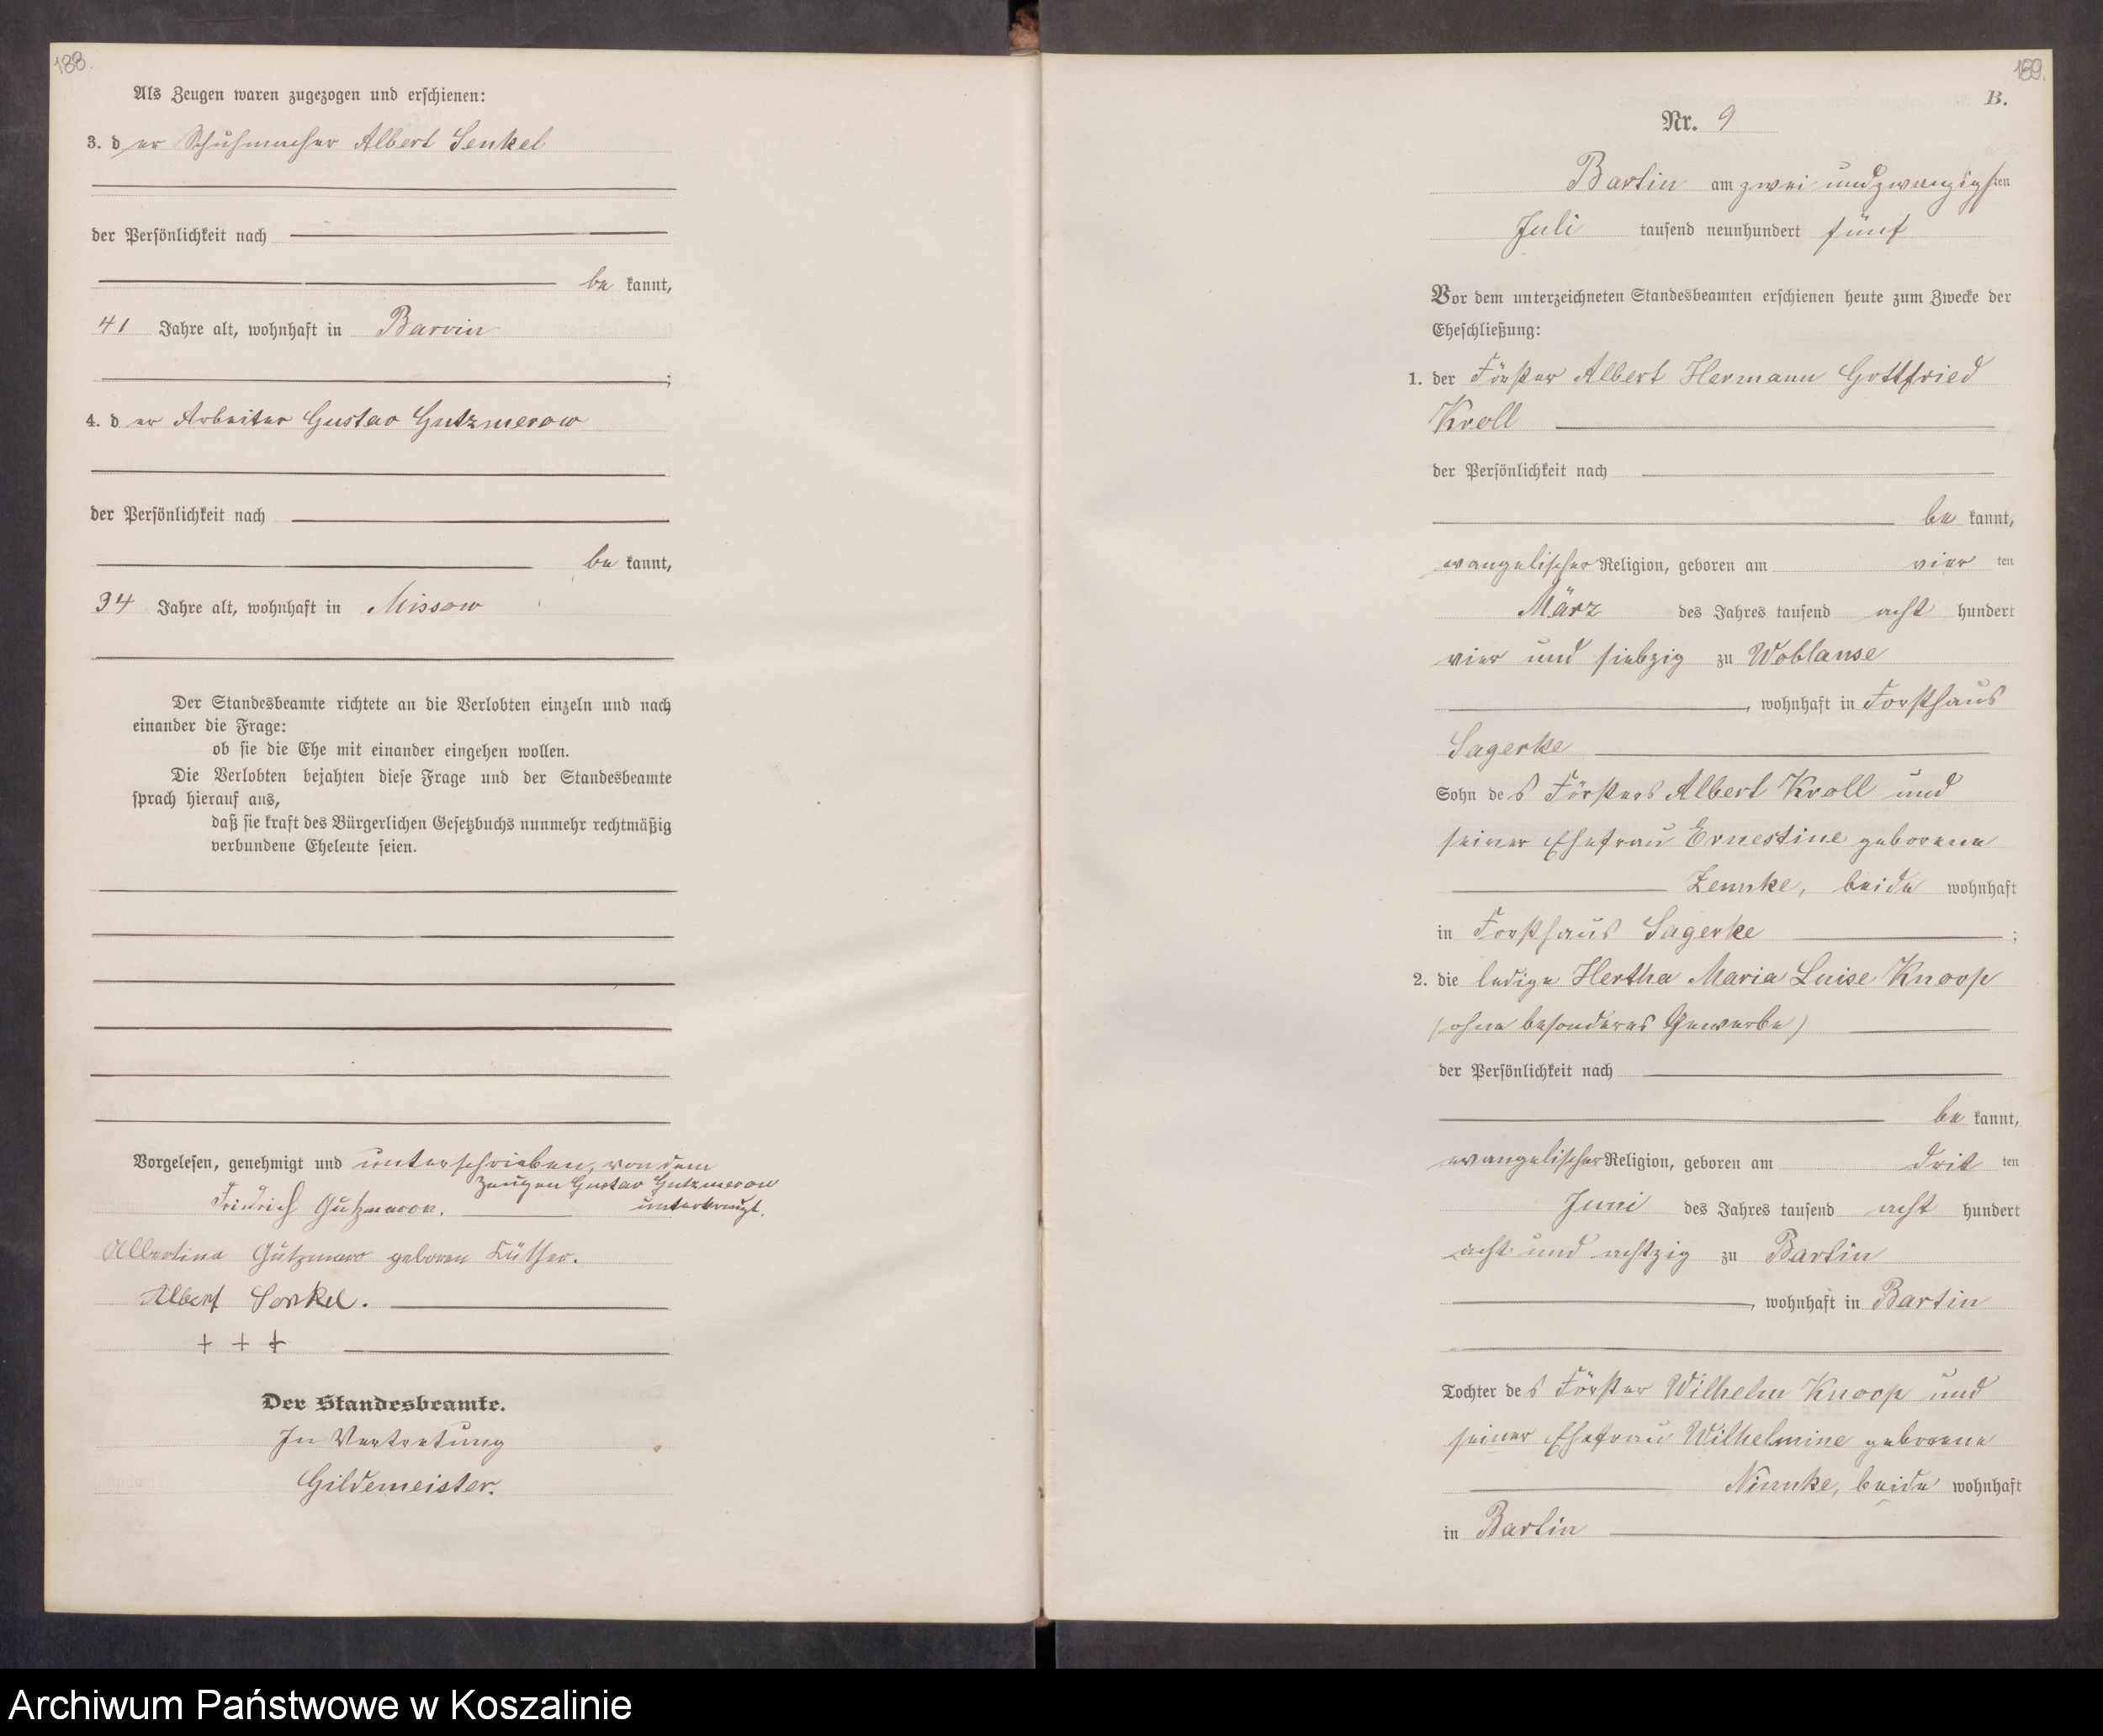 188.
Als Zeugen waren zugezogen und erschienen:
3. der Schuhmacher Albert Senkel
der Persönlichkeit nach
be kannt,
41 Jahre alt, wohnhaft in Barvin
;
4. der Arbeiter Gustav Gutzmerow
der Persönlichkeit nach
be kannt,
34 Jahre alt, wohnhaft in Missow
Der Standesbeamte richtete an die Verlobten einzeln und nach
einander die Frage:
ob sie die Ehe mit einander eingehen wollen.
Die Verlobten bejahten diese Frage und der Standesbeamte
sprach hierauf aus,
daß sie kraft des Bürgerlichen Gesetzbuchs nunmehr rechtmäßig
verbundene Eheleute seien.
Vorgelesen, genehmigt und unterschrieben, von dem
Zeugen Gustav Gutzmerow
unterkreuzt.
Friedrich Gutzmerow.
Albertine Gutzmerow geboren Lüther.
Albert Senkel.
+ + +
Der Standesbeamte.
In Vertretung
Gildemeister.
189.
B.
Nr. 9
Bartin am zwei und zwanzigsten
Juli tausend neunhundert fünf
Vor dem unterzeichneten Standesbeamten erschienen heute zum Zwecke der
Eheschließung:
1. der Förster Albert Hermann Gottfried
Kroll
der Persönlichkeit nach
be kannt,
evangelischer Religion, geboren am vier ten
März des Jahres tausend acht hundert
vier und siebzig zu Woblanse
, wohnhaft in Forsthaus
Sagerke
Sohn des Försters Albert Kroll und
seiner Ehefrau Ernestine geborene
Lemke, beide wohnhaft
in Forsthaus Sagerke ;
2. die ledige Hertha Maria Luise Knoop
(ohne besonderes Gewerbe)
der Persönlichkeit nach
be kannt,
evangelischer Religion, geboren am drit ten
Juni des Jahres tausend acht hundert
acht und achtzig zu Bartin
, wohnhaft in Bartin
Tochter des Förster Wilhelm Knoop und
seiner Ehefrau Wilhelmine geborene
Nimke, beide wohnhaft
in Bartin
Archiwum Państwowe w Koszalinie